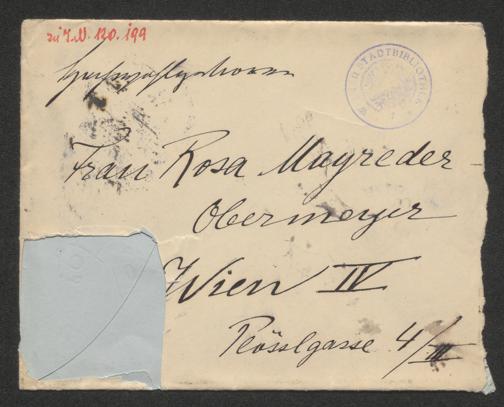 zu J.N. 120.199
WIEN STADTBIBLIOTHEK
Hochwohlgeboren
Frau Rosa Mayreder-
Obermayer
Wien IV
Plösslgasse 4/III